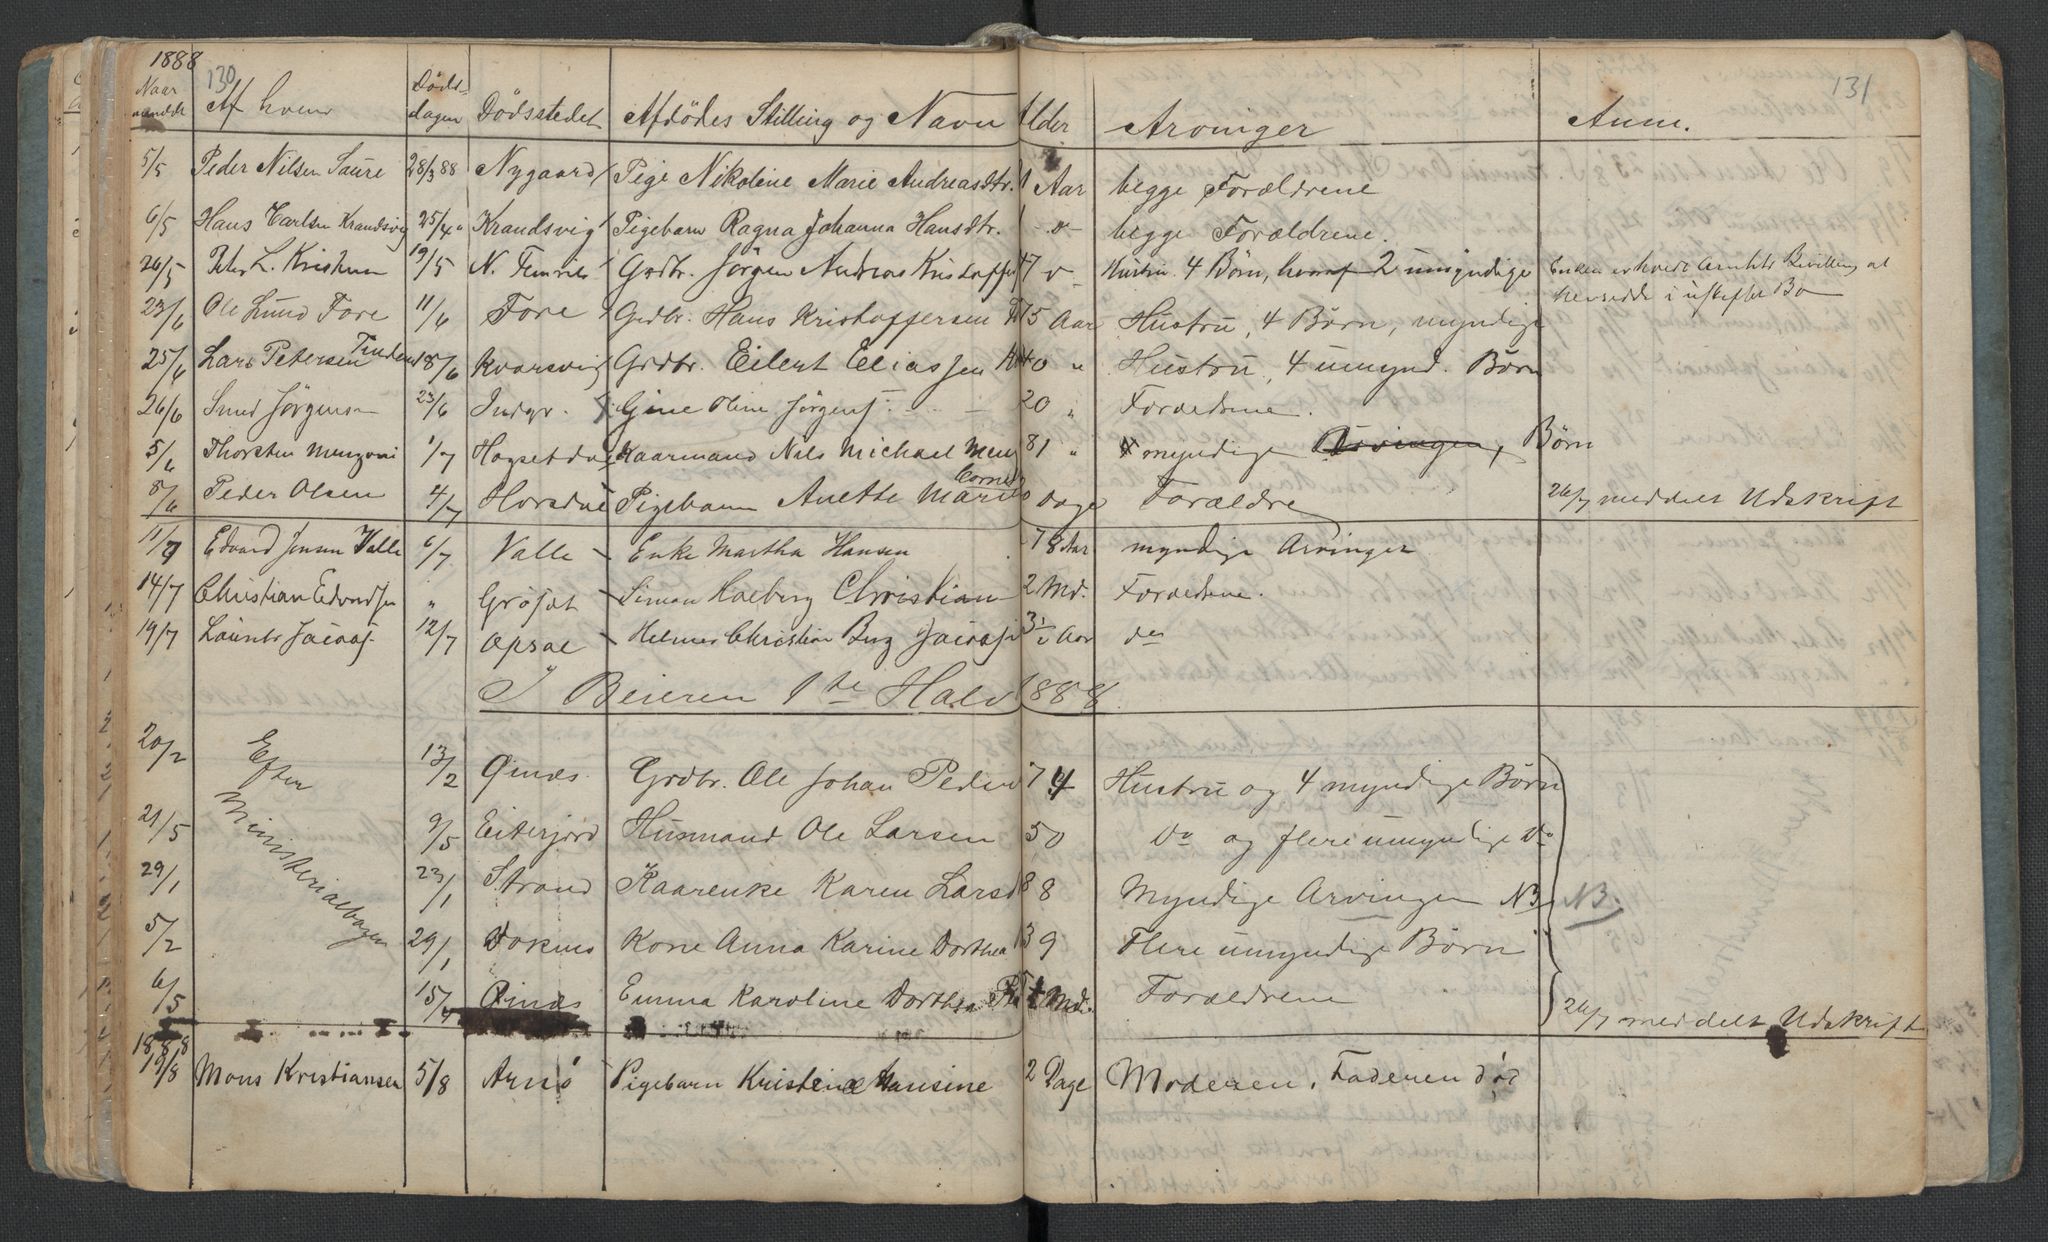 1888
130
131
Naar meldt Af hvem Døds-dagen Dødsstedet Afdødes Stilling og Navn Alder Arvinger Anm.
5/5 Peder Nilsen Saure 28/3 88 Nygaard Pige Nikoline Marie Andreasdtr. 1 Aar begge Forældrene
6/5 Hans Carlsen Krandsvig 25/4 " Krandsvig Pigebarn Ragna Johanna Hansdtr. 1 -"- begge Forældrene.
26/5 Peter L. Kristensen 19/5 N. Femris Grdbr. Jørgen Andreas Kristoffers 47 " Hustru 4 Børn, hvoraf 2 umyndige Enken erholdt Amtets Bevilling at
hensidde i uskiftet Bo
23/6 Ole Lund Fore 11/6 Fore Grdbr. Hans Kristoffersen 75 Aar Hustru, 4 Børn, myndige
25/6 Lars Petersen Finden 18/6 Kvarsvig Grdbr. Eilert Eliassen 40 " Hustru, 4 umynd. Børn
26/6 Jørgensen 23/6 Indgr. Gine Oline Jørgens 20 " Forældrene.
5/6 Thorsten 1/7 Kaarmand Nils Michael 81 " myndige Arvinger, Børn
8/6 Peder Olsen 4/7 Horsdal Pigebarn Anette Marie Cornelia Dage Forældre 26/7 meddelt Udskrift
11/7 Edvard Jensen Valle 6/7 Valle - Enke Martha Hansen 78 Aar myndige Arvinger
14/7 Christian Edvardsen " Grøset - Simon Hoeberg Christian 2 Md. Forældrene.
19/7 Laurits 12/7 Opsal - Helmer Christian Berg 3 1/2 Aar do
I Beieren 1ste Halv 1888
20/2 Efter Ministerialbogen 13/2 Osnes Grdbr. Ole Johan Pedersen 74 Hustru og 4 myndige Børn
21/5 9/5 Eiterjord Husmand Ole Larsen 50 Do og flere umyndige Do
29/1 23/1 Strand Kaarenke Karen Larsd 88 Myndige Arvinger NB NB.
5/2 29/1 Dokmo Kone Anna Karine Dorthea 39 Flere umyndige Børn
6/5 15/4 Osnes Emma Karoline Dorthea 5 1/2 Md. Forældrene 26/7 meddelt Udskrift
1888
19/8 Mons Kristiansen 5/8 Arnø Pigebarn Kristine Hansine 2 Dage Moderen, Faderen død